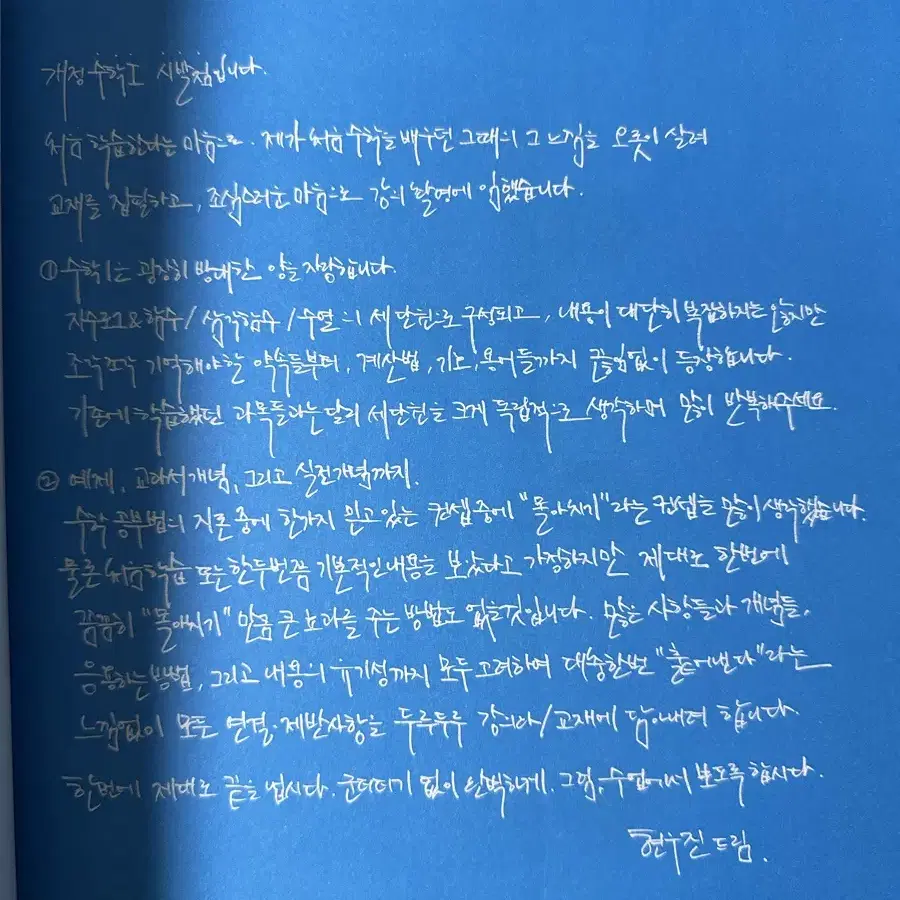 개정 수학도 시발점입니다.
처음 학습한다는 마음으로. 제가 처음 수학을 배우던 그때의 그 느낌을 오롯이 살려
교재를 집필하고, 조심스러운 마음으로 강의 촬영에 임했습니다.
① 수학1는 굉장히 방대한 양을 자랑합니다.
지수로그&함수/삼각함수/수열의 세 단원으로 구성되고, 내용이 대단히 복잡하지는 않지만
조각조각 기억해야할 약속들부터, 계산법, 기호, 용어들까지 끊임없이 등장합니다.
기존에 학습했던 과목들과는 달리 세단원을 크게 독립적으로 생각하며 많이 반복해주세요.
② 예제, 교과서개념, 그리고 실전개념까지.
수학 공부법의 지론 중에 한가지 믿고 있는 컨셉 중에 "몰아치기"라는 컨셉을 많이 생각했습니다.
물론 처음학습 또는 한두번쯤 기본적인 내용을 보았다고 가정하지만 제대로 한번에
꼼꼼히 "몰아치기" 만큼 큰 효과를 주는 방법도 없을것입니다. 많은 사항들과 개념들,
응용하는 방법, 그리고 내용의 유기성까지 모두 고려하여 대충한번 "훑어낸다"라는
느낌없이 모든 연결·제반사항을 두루두루 강의/교재에 담아내려 합니다.
한번에 제대로 끝을 냅시다. 군더더기 없이 완벽하게. 그럼, 수업에서 보도록 합시다.
현우진 드림.